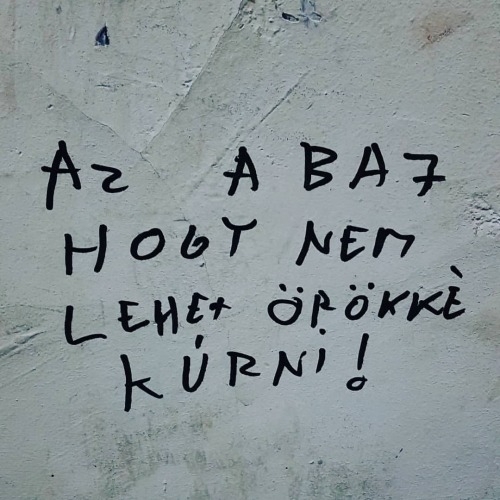 AZ A BAJ
HOGY NEM
LEHET ÖRÖKKÈ
KÚRNI!